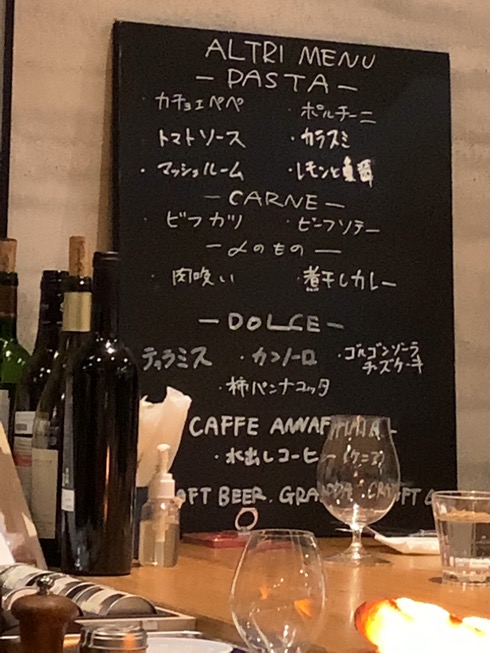 ALTRI MENU
— PASTA —
・カチョエペペ ・ポルチーニ
トマトソース ・カラスミ
・マッシュルーム ・レモンと魚醤
— CARNE —
・ビフカツ ・ビーフソテー
— 〆のもの —
・肉吸い ・煮干しカレー
— DOLCE —
ティラミス ・カンノーロ ・ゴルゴンゾーラ
チーズケーキ
・柿パンナコッタ
CAFFE
・水出しコーヒー (ケニア)
BEER. GRAPPA.